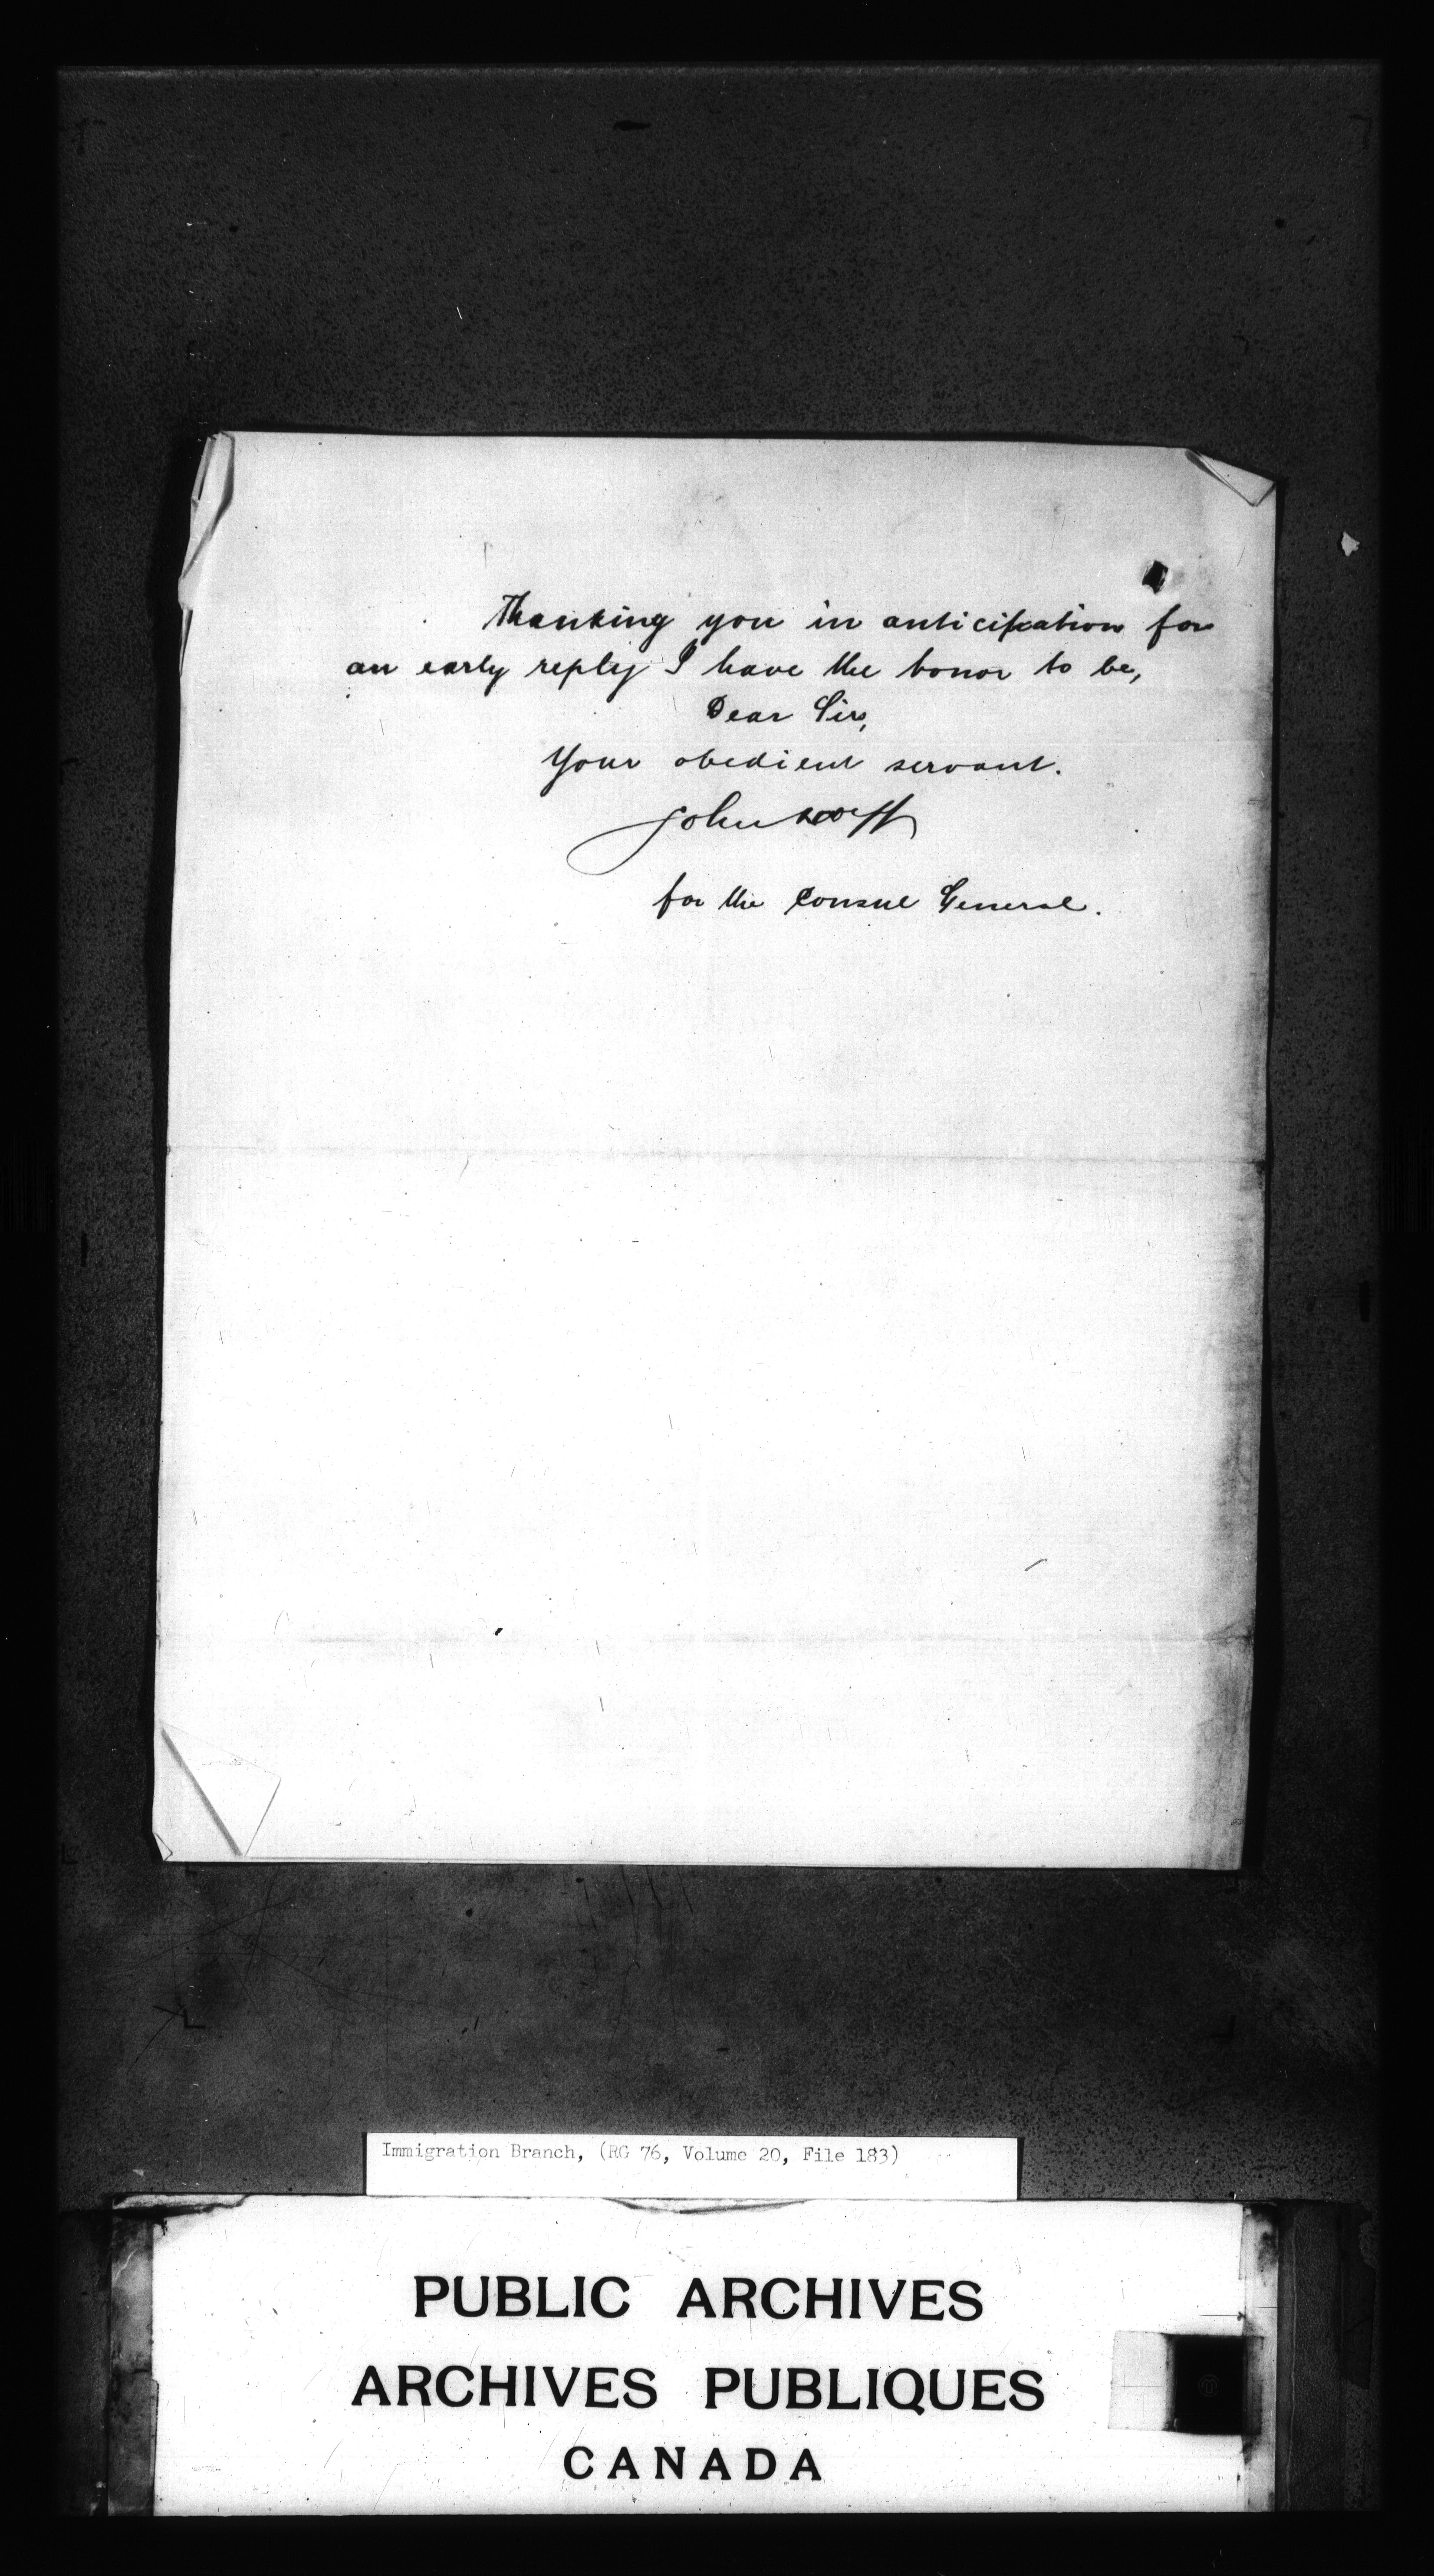 Thanking you in anticipation for
an early reply I have the honor to be,
Dear Sir,
Your obedient servant.
John
for the Consul General.
Immigration Branch, (RG 76, Volume 20, File 183)
PUBLIC ARCHIVES
ARCHIVES PUBLIQUES
CANADA